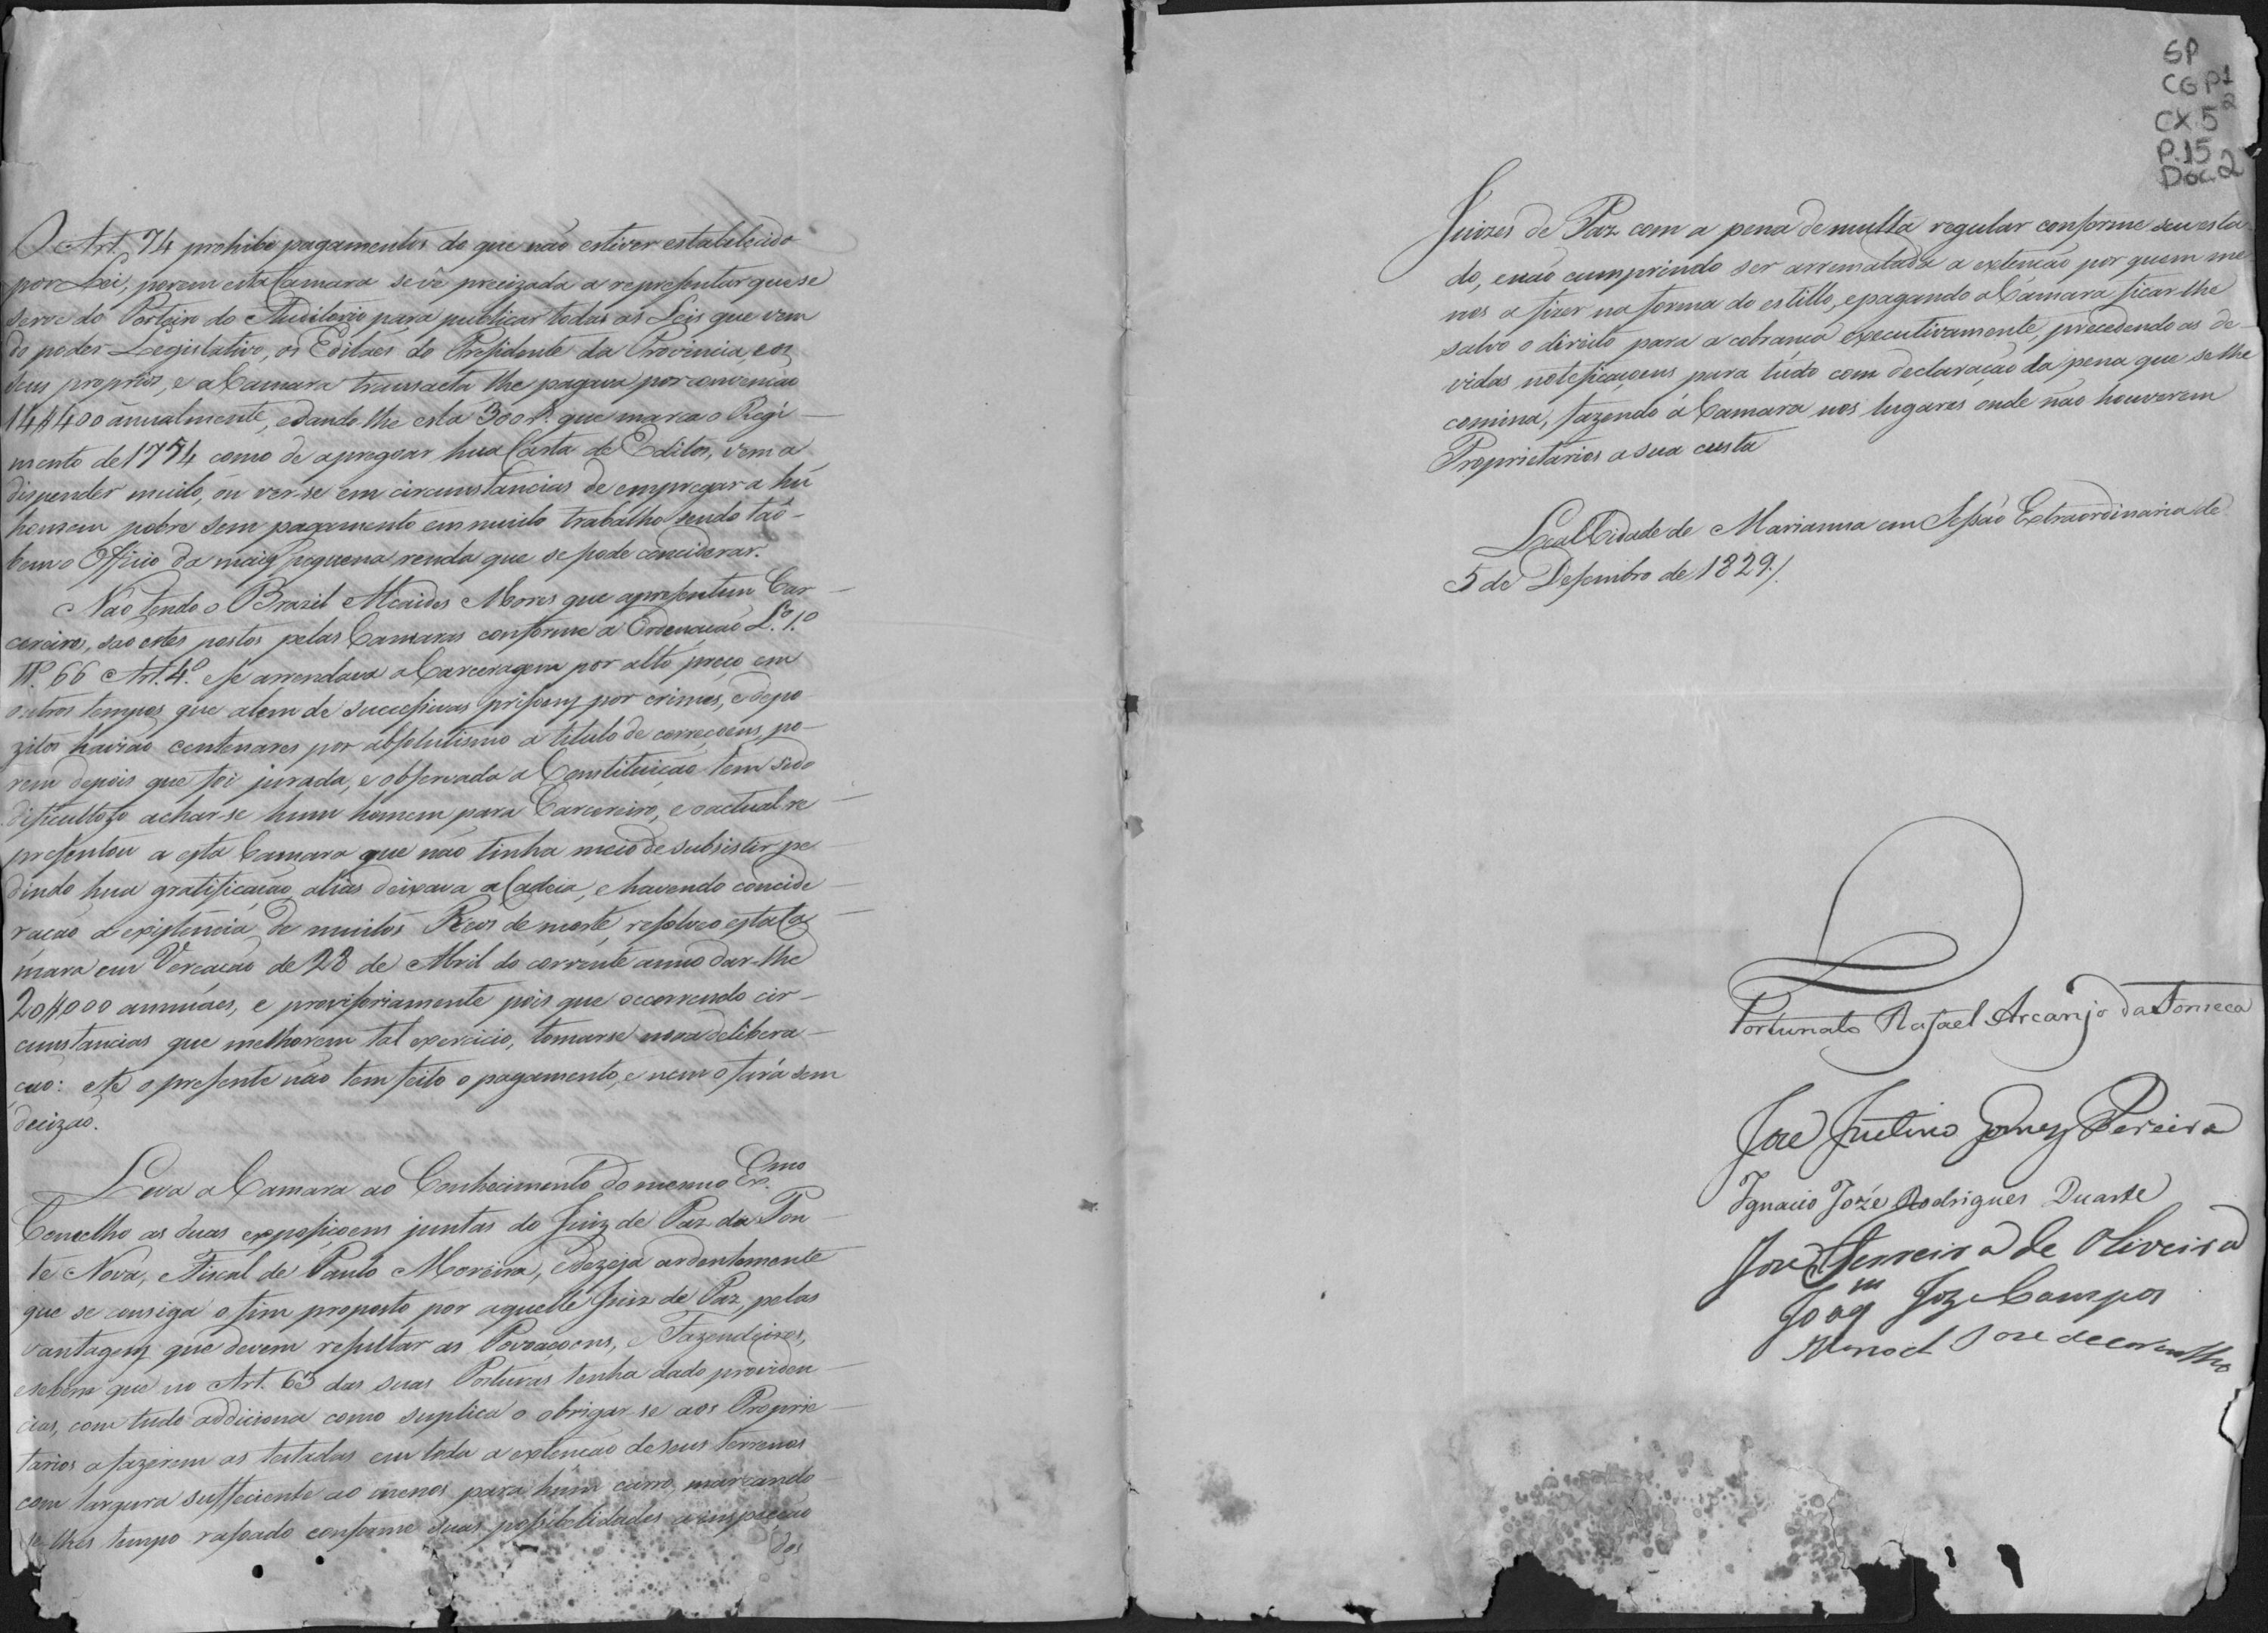 O Art. 74 prohibe pagamentos do que não estiver estabelecido
por Lei, porem esta Camara se vê precizada a representar que se
serve do Porteiro do Auditorio para publicar todas as Leis que vem
do poder Legislativo, os Editaes do Presidente da Provincia, e os
seus proprios, e a Camara transacta lhe pagava por convenção
14$400 annualmente, e dando-lhe esta 300 r.s que marca o Regi
mento de 1754 como de apregoar hua Carta de Editos, vem a
dispender muito, ou ver-se em circumstancias de empregar a hũ
homem pobre sem pagamento em muito trabalho sendo tão-
bem o Officio da mais pequena renda que se pode conciderar.
Não tendo o Brazil Alcaides Mores que apresentem Car
cereiros, são estes postos pelas Camaras conforme a Ordenação L.º 1.º
Tt.º 66 Art. 4.º e se arrendava a Carceragem por alto preço em
outros tempos que alem de successivas prisoens por crimes, e depo
zitos havião centenares por absolutismo a titulo de correçoens, po-
rem depois que foi jurada, e observada a Constituição tem sido
dificultozo achar-se hum homem para Carcereiro, e o actual re
presentou a esta Camara que não tinha meio de subsistir pe
dindo hua gratificação, alias deixava a Cadeia, e havendo concide
ração a existencia de muitos Reos de morte, resolveo esta Ca
mara em Vereação de 28 de Abril do corrente anno dar-lhe
20$000 annuaes, e provisoriamente pois que occorrendo cir-
cunstancias que melhorem tal exercicio, tomarse nova delibera-
ção: até o presente não tem feito o pagamento, e nem o fará sem
decizão.
Leva a Camara ao Conhecimento do mesmo Ex.mo
Concelho as duas exposiçoens juntas do Juiz de Paz da Pon
te Nova, e Fiscal de Paulo Moreira, e dezeja ardentemente
que se consiga o fim proposto por aquelle Juiz de Paz, pelas
vantagens que devem resultar as Povoaçoens, e Fazendeiros,
e sebem que no Art. 63 das suas Posturas tenha dado providen
cias, com tudo addiciona como suplica o obrigar-se aos Proprie
tarios a fazerem as testadas em toda a extenção de seus terrenos
com largura sufficiente ao menos para hum carro, marcando-
se-lhes tempo rasoado conforme suas possibelidades a inspecção
dos
SP
CG P1
CX 5 2
P.15
Doc. 2
Juizes de Paz com a pena de multa regular conforme seu esta
do, e não cumprindo ser arrematada a extenção por quem me
nos a fizer na forma do estillo, e pagando a Camara ficar-lhe
salvo o direito para a cobrança executivamente, precedendo as de
vidas noteficaçoens para tudo com declaração da pena que se lhe
comina, fazendo a Camara nos lugares onde não houverem
Proprietarios a sua custa
Leal Cidade de Marianna em Sessão Extraordinaria de
5 de Desembro de 1829./
Fortunato Rafael Arcanjo da Fonseca
Joze Justino Gomes Pereira
Ignacio Jozé Rodrigues Duarte
Joze Ferreira de Oliveira
Joaq.m Joz Campos
Manoel Joze de Carvalho